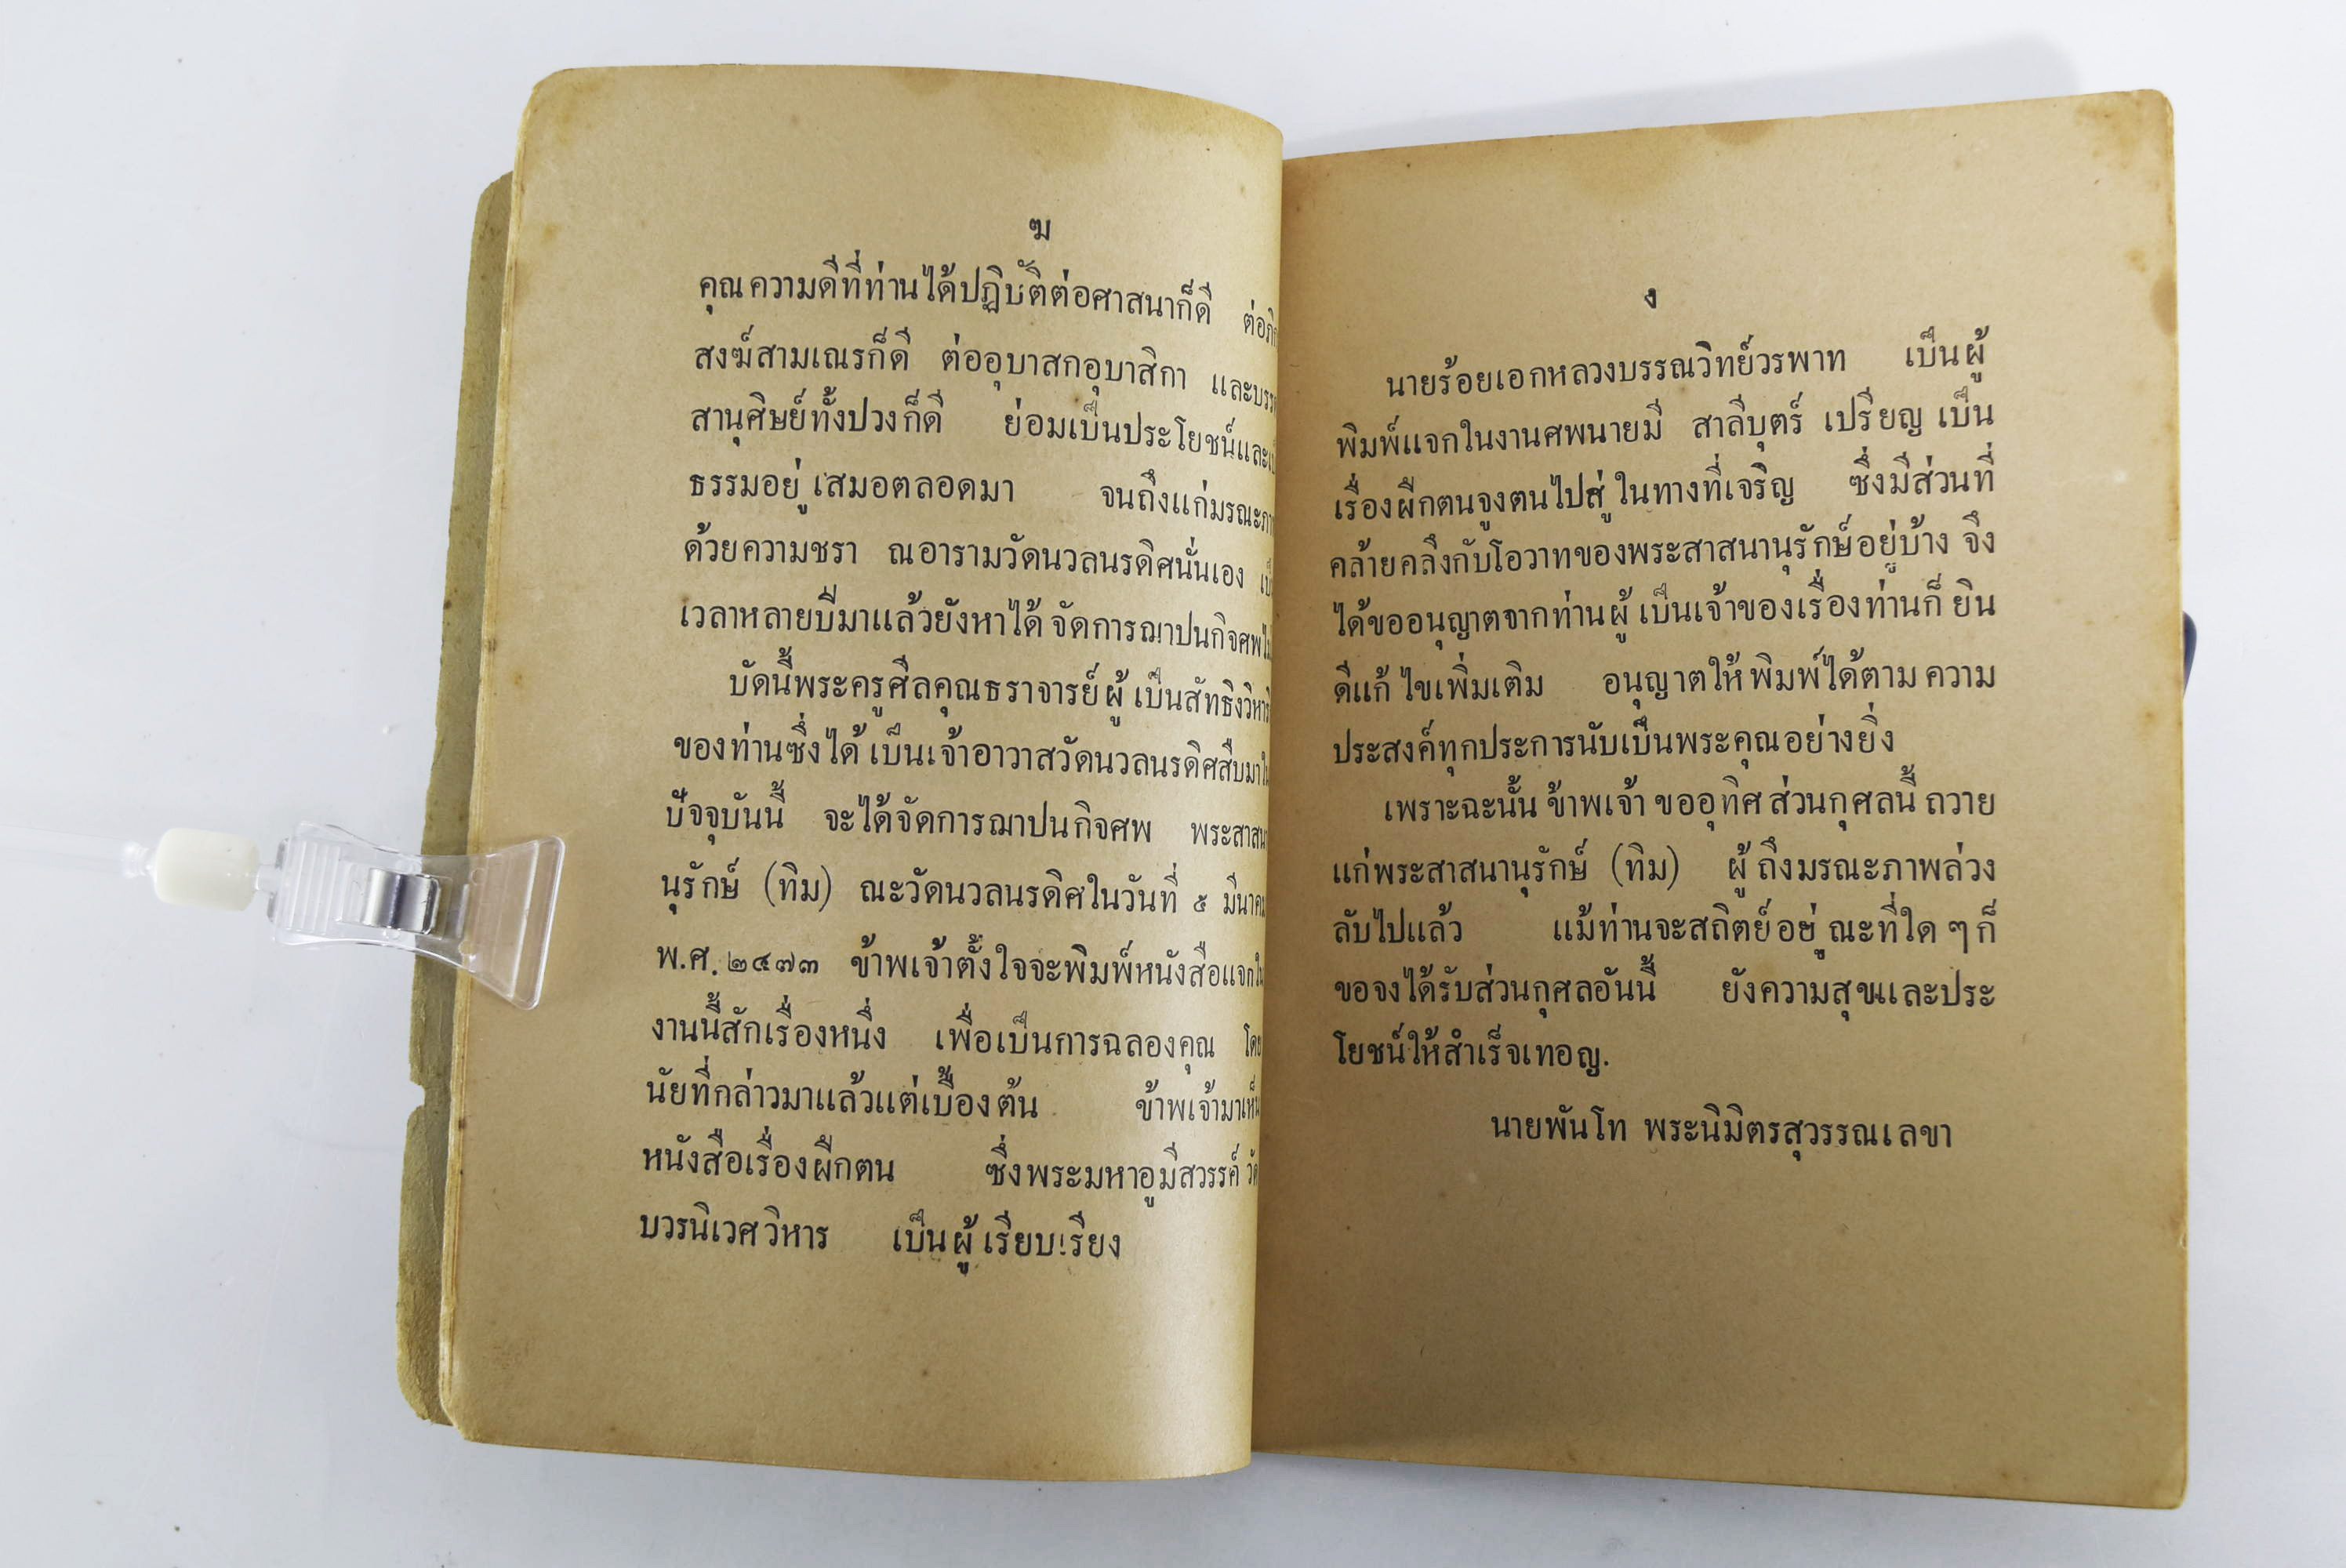 ฆ
คุณความดีที่ท่านได้ปฏิบัติต่อศาสนาก็ดี
สงฆ์สามเณรก็ดี ต่ออุบาสกอุบาสิกา
สานุศิษย์ทั้งปวงก็ดี ย่อมเป็นประโยชน์และ
ธรรมอยู่เสมอตลอดมา จนถึงแก่
ด้วยความชรา ณอารามวัดนวลนรดิศนั่นเอง
เวลาหลายปีมาแล้วยังหาได้จัดการฌาปนกิจศพ
บัดนี้พระครูศีลคุณธราจารย์ผู้เป็นสัทธิงวิหาริ
ของท่านซึ่งได้เป็นเจ้าอาวาสวัดนวลนรดิศสืบมา
ปัจจุบันนี้ จะได้จัดการฌาปนกิจศพ พระสาสนา
นุรักษ์ (ทิม) ณะวัดนวลนรดิศในวันที่ ๕ มีนาคม
พ.ศ. ๒๔๗๓ ข้าพเจ้าตั้งใจจะพิมพ์หนังสือแจกใน
งานนี้สักเรื่องหนึ่ง เพื่อเป็นการฉลองคุณ โดย
นัยที่กล่าวมาแล้วแต่เบื้องต้น ข้าพเจ้ามาเห็น
หนังสือเรื่องฝึกตน ซึ่งพระมหาอูมีสวรรค์ วัด
บวรนิเวศวิหาร เป็นผู้เรียบเรียง
ง
นายร้อยเอกหลวงบรรณวิทย์วรพาท เป็นผู้
พิมพ์แจกในงานศพนายมี สาลีบุตร์ เปรียญ เป็น
เรื่องฝึกตนจูงตนไปสู่ในทางที่เจริญ ซึ่งมีส่วนที่
คล้ายคลึงกับโอวาทของพระสาสนานุรักษ์อยู่บ้าง จึง
ได้ขออนุญาตจากท่านผู้เป็นเจ้าของเรื่องท่านก็ ยิน
ดีแก้ไขเพิ่มเติม อนุญาตให้พิมพ์ได้ตามความ
ประสงค์ทุกประการนับเป็นพระคุณอย่างยิ่ง
เพราะฉะนั้น ข้าพเจ้า ขออุทิศ ส่วนกุศลนี้ ถวาย
แก่พระสาสนานุรักษ์ (ทิม) ผู้ถึงมรณะภาพล่วง
ลับไปแล้ว แม้ท่านจะสถิตย์อยู่ณะที่ใด ๆ ก็
ขอจงได้รับส่วนกุศลอันนี้ ยังความสุขและประ
โยชน์ให้สำเร็จเทอญ.
นายพันโท พระนิมิตรสุวรรณเลขา